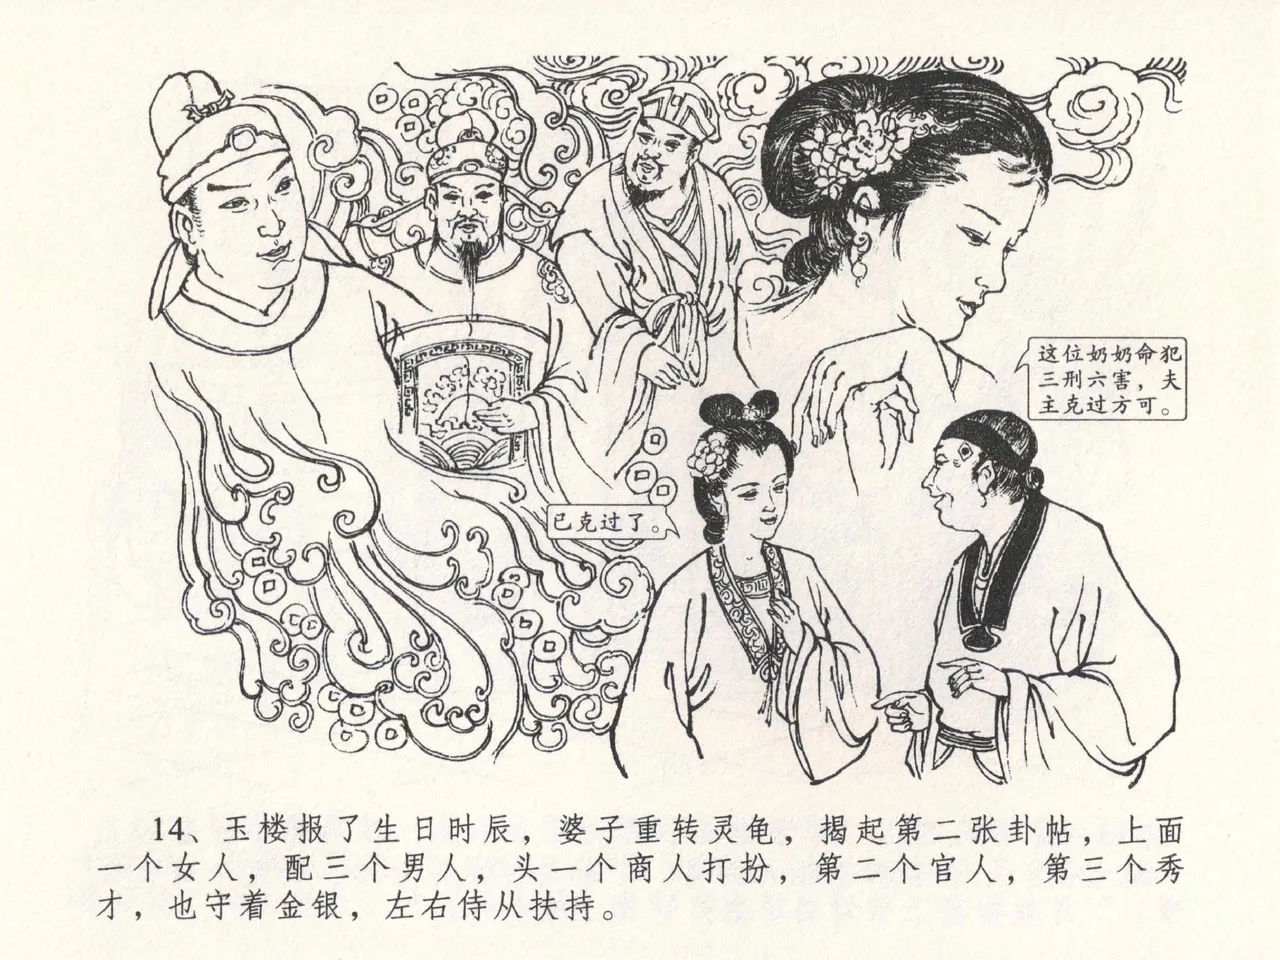 这位奶奶命犯
三刑六害，夫
主克过方可。
已克过了。
14、玉楼报了生日时辰，婆子重转灵龟，揭起第二张卦帖，上面
一个女人，配三个男人，头一个商人打扮，第二个官人，第三个秀
才，也守着金银，左右侍从扶持。